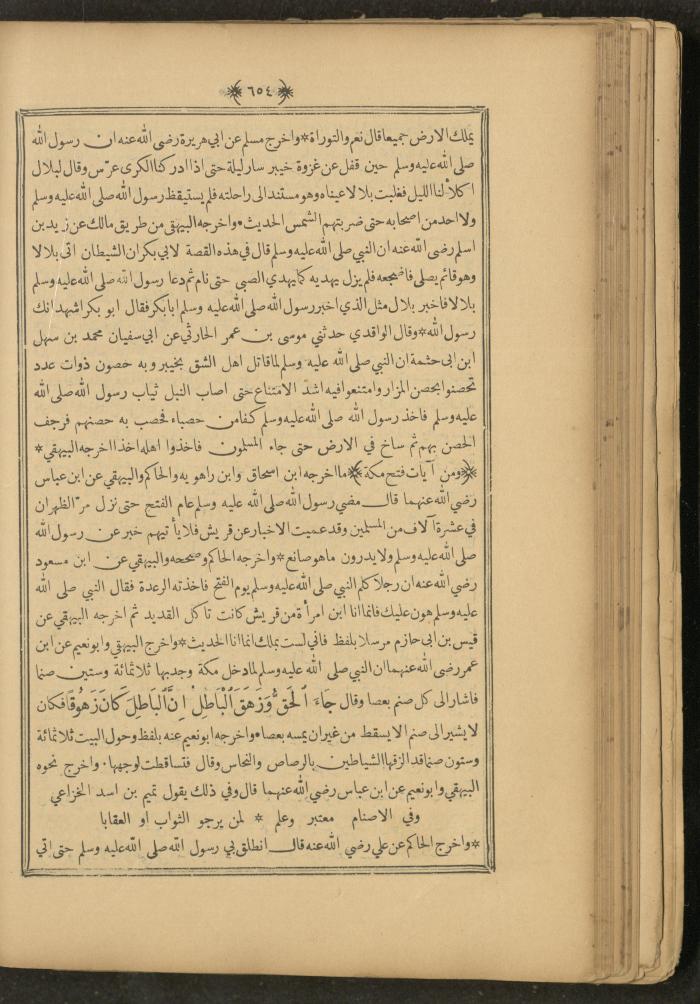 ﴿ ٦٥٤ ﴾
يملك الارض جميعا قال نعم والتوراة * واخرج مسلم عن ابي هريرة رضى الله عنه ان رسول الله
صلى الله عليه وسلم حين قفل عن غزوة خيبر سار ليلة حتى اذا ادركنا الكرى عرّس وقال لبلال
اكلأ لنا الليل فغلبت بلالا عيناه وهو مستند الى راحلته فلم يستيقظ رسول الله صلى الله عليه وسلم
ولا احد من اصحابه حتى ضربتهم الشمس الحديث * واخرجه البيهقى من طريق مالك عن زيد بن
اسلم رضى الله عنه ان النبي صلى الله عليه وسلم قال في هذه القصة لابي بكر ان الشيطان اتى بلالا
وهو قائم يصلى فاضجعه فلم يزل يهديه كما يهدي الصبي حتى نام ثم دعا رسول الله صلى الله عليه وسلم
بلالا فاخبر بلال مثل الذي اخبر رسول الله صلى الله عليه وسلم ابا بكر فقال ابو بكر اشهد انك
رسول الله * وقال الواقدي حدثني موسى بن عمر الحارثي عن ابي سفيان محمد بن سهل
ابن ابى حثمة ان النبي صلى الله عليه وسلم لما قاتل اهل الشق بخيبر وبه حصون ذوات عدد
تحصنوا بحصن المزار وامتنعوا فيه اشد الامتناع حتى اصاب النبل ثياب رسول الله صلى الله
عليه وسلم فاخذ رسول الله صلى الله عليه وسلم كفا من حصباء فحصب به حصنهم فرجف
الحصن بهم ثم ساخ في الارض حتى جاء المسلمون فاخذوا اهله اخذا اخرجه البيهقي *
﴿ ومن آيات فتح مكة ﴾ ما اخرجه ابن اسحاق وابن راهويه والحاكم والبيهقي عن ابن عباس
رضى الله عنهما قال مضي رسول الله صلى الله عليه وسلم عام الفتح حتى نزل مرّ الظهران
في عشرة آلاف من المسلمين وقد عميت الاخبار عن قريش فلا يأتيهم خبر عن رسول الله
صلى الله عليه وسلم ولا يدرون ما هو صانع * واخرجه الحاكم وصححه والبيهقي عن ابن مسعود
رضي الله عنه ان رجلا كلم النبي صلى الله عليه وسلم يوم الفتح فاخذته الرعدة فقال النبي صلى الله
عليه وسلم هون عليك فانما انا ابن امرأة من قريش كانت تأكل القديد ثم اخرجه البيهقي عن
قيس بن ابى حازم مرسلا بلفظ فاني لست بملك انما انا الحديث * واخرج البيهقي وابو نعيم عن ابن
عمر رضى الله عنهما ان النبي صلى الله عليه وسلم لما دخل مكة وجد بها ثلاثمائة وستين صنما
فاشار الى كل صنم بعصا وقال جَاءَ ٱلْحَقُّ وَزَهَقَ ٱلْبَاطِلُ اِنَّ ٱلْبَاطِلَ كَانَ زَهُوقًا فكان
لا يشير الى صنم الا يسقط من غير ان يمسه بعصا * واخرجه ابو نعيم عنه بلفظ وحول البيت ثلاثمائة
وستون صنما قد الزقها الشياطين بالرصاص والنحاس وقال فتساقطت لوجهها * واخرج نحوه
البيهقي وابو نعيم عن ابن عباس رضي الله عنهما قال وفي ذلك يقول تميم بن اسد الخزاعي
وفي الاصنام معتبر وعلم * لمن يرجو الثواب او العقابا
* واخرج الحاكم عن علي رضي الله عنه قال انطلق بي رسول الله صلى الله عليه وسلم حتى اتي